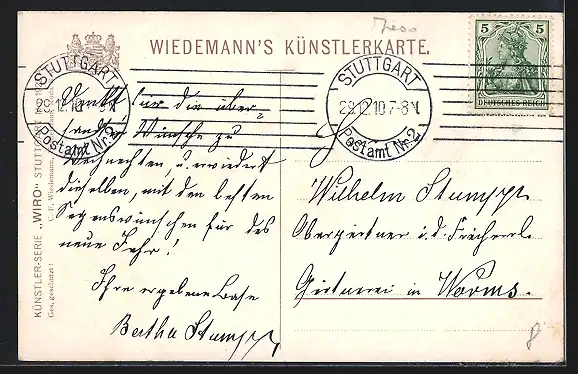 WIEDEMANN'S KÜNSTLERKARTE.
STUTTGART
29.12.10 7-8 N.
Postamt Nr. 2
STUTTGART
29.12.10 7-8 N.
Postamt Nr. 2
5 5
DEUTSCHES REICH
KÜNSTLER-SERIE „WIRO“ STUTTGART
Ges. geschützt! C. F. Wiedemann,
Dankt für die über-
sandten Wünsche zu
Weihnachten, u. erwiedert
dieselben, mit den besten
Segenswünschen für das
neue Jahr!
Ihre ergebene Base
Bertha Stumpp
Wilhelm Stumpp
Obergärtner i. d.
Gärtnerei in Worms.